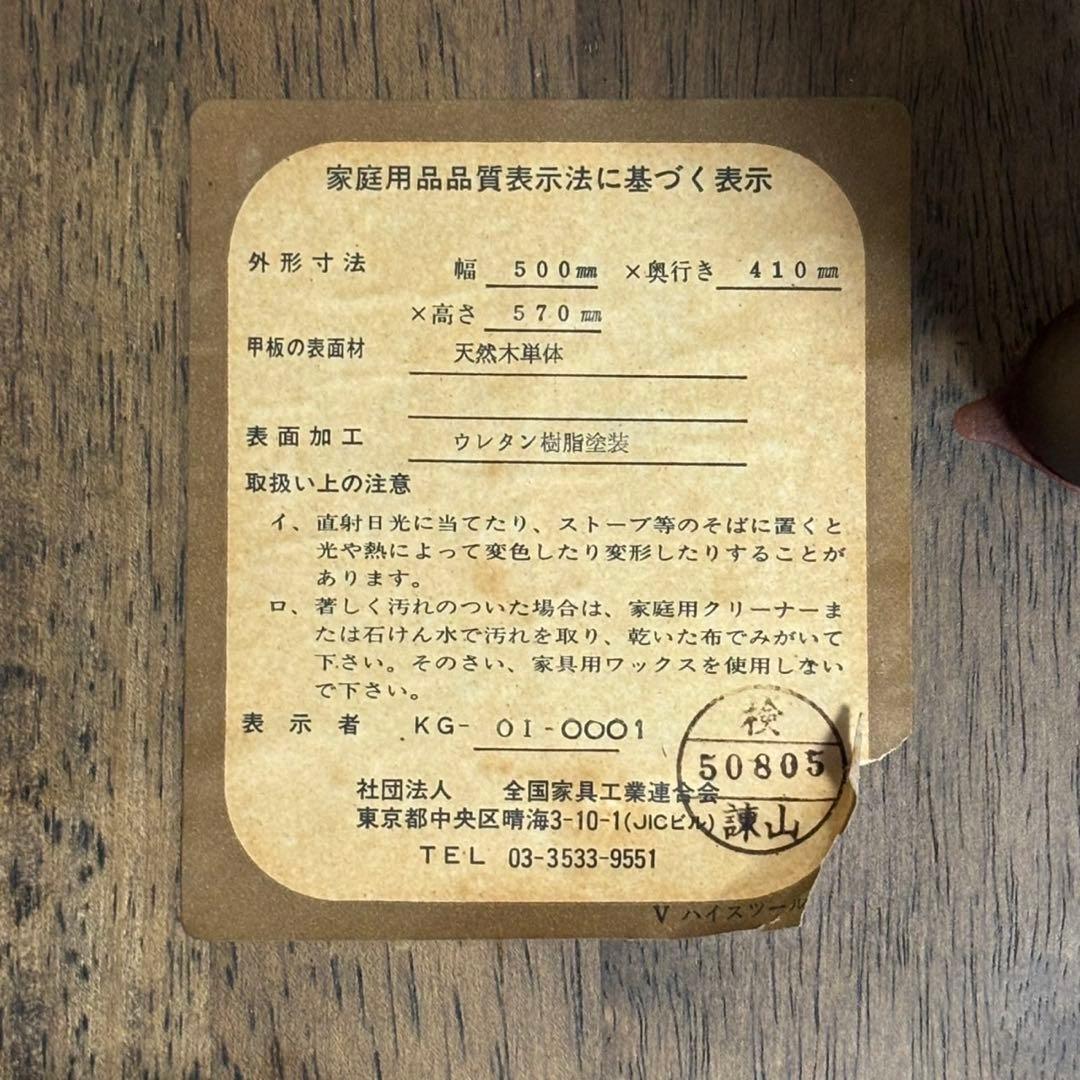 家庭用品品質表示法に基づく表示
外形寸法 幅 500㎜ ×奥行き 410㎜
×高さ 570㎜
甲板の表面材 天然木単体
表面加工 ウレタン樹脂塗装
取扱い上の注意
イ、直射日光に当てたり、ストーブ等のそばに置くと
光や熱によって変色したり変形したりすることが
あります。
ロ、著しく汚れのついた場合は、家庭用クリーナーま
たは石けん水で汚れを取り、乾いた布でみがいて
下さい。そのさい、家具用ワックスを使用しない
で下さい。
表示者 KG-01-0001
検
50805
諫山
社団法人 全国家具工業連合会
東京都中央区晴海3-10-1(JICビル)
TEL 03-3533-9551
V ハイスツール